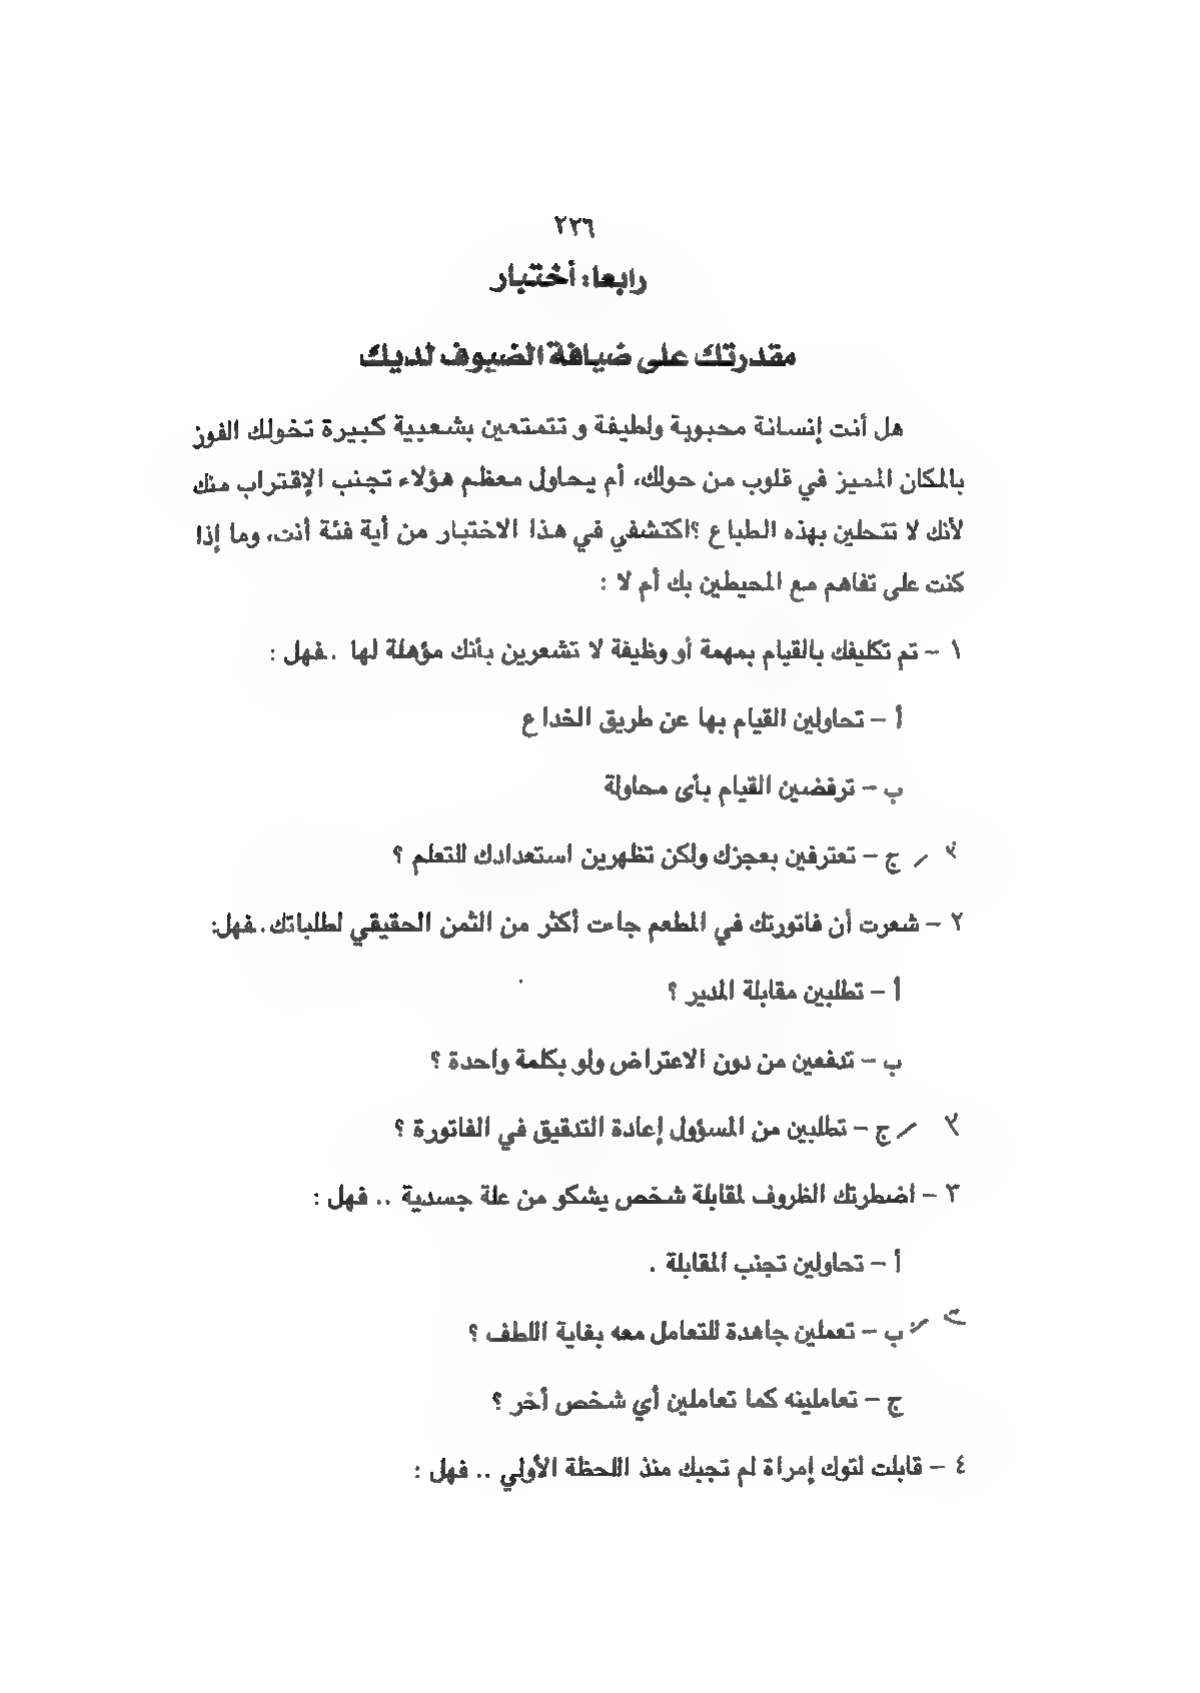 ٢٣٦
رابعا: أختبار
مقدرتك على ضيافة الضيوف لديك
هل أنت إنسانة محبوبة ولطيفة و تتمتعين بشعبية كبيرة تخولك الفوز
بالمكان المميز في قلوب من حولك، أم يحاول معظم هؤلاء تجنب الإقتراب منك
لأنك لا تتحلين بهذه الطباع ؟اكتشفي في هذا الاختبار من أية فئة أنت، وما إذا
كنت على تفاهم مع المحيطين بك أم لا :
١ – تم تكليفك بالقيام بمهمة أو وظيفة لا تشعرين بأنك مؤهلة لها ..فهل :
أ – تحاولين القيام بها عن طريق الخداع
ب – ترفضين القيام بأى محاولة
ج – تعترفين بعجزك ولكن تظهرين استعدادك للتعلم ؟
٢ – شعرت أن فاتورتك في المطعم جاءت أكثر من الثمن الحقيقي لطلباتك..فهل:
أ – تطلبين مقابلة المدير ؟
ب – تدفعين من دون الاعتراض ولو بكلمة واحدة ؟
ج – تطلبين من المسؤول إعادة التدقيق في الفاتورة ؟
٣ – اضطرتك الظروف لمقابلة شخص يشكو من علة جسدية .. فهل :
أ – تحاولين تجنب المقابلة .
ب – تعملين جاهدة للتعامل معه بغاية اللطف ؟
ج – تعاملينه كما تعاملين أي شخص أخر ؟
٤ – قابلت لتوك إمراة لم تجبك منذ اللحظة الأولي .. فهل :